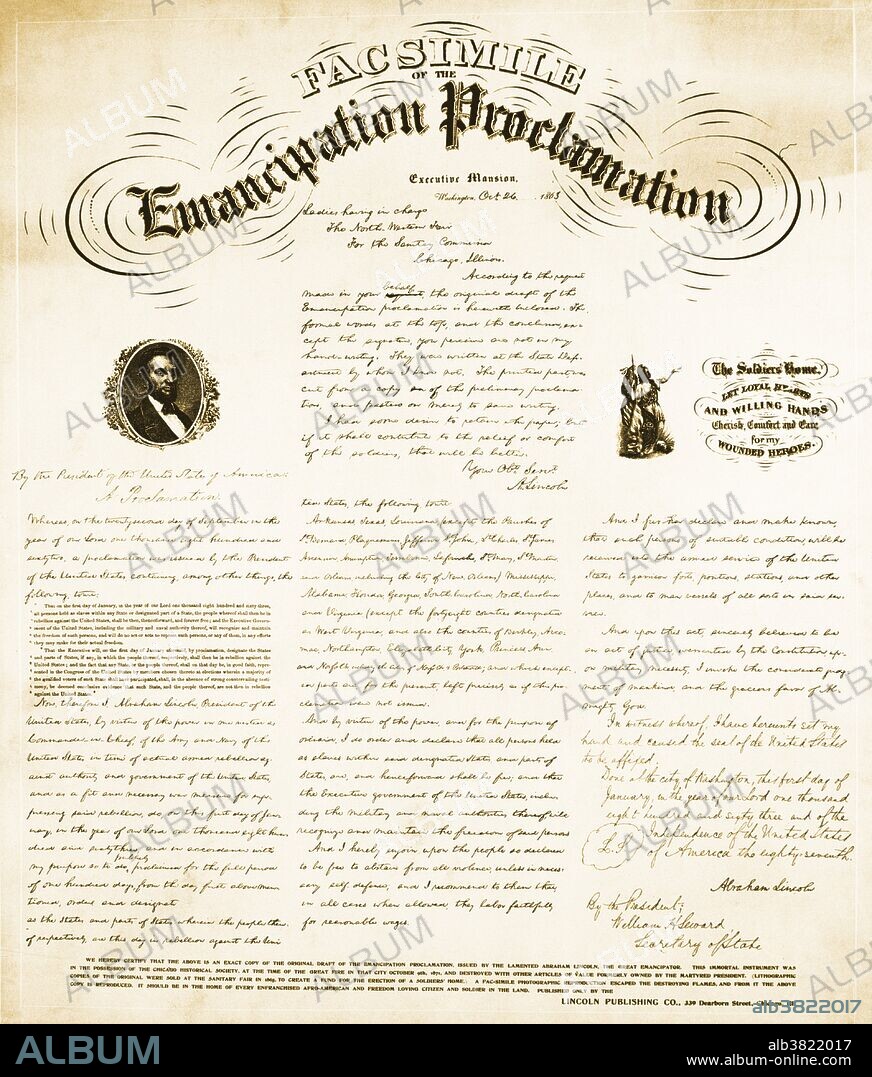 FACSIMILE
OF THE
Emancipation Proclamation
Executive Mansion,
Washington, Oct 26, 1863
Ladies having in charge
The North Western Fair
For the Sanitary Commission
Chicago, Illinois.
According to the request
made in your behalf, the original draft of the
Emancipation proclamation is herewith inclosed. The
formal words at the top, and the conclusion, ex-
cept the signature, you perceive are not in my
hand-writing. They were written at the State Dep-
artment by whom I know not. The printed part was
cut from a copy of the preliminary proclama-
tion, and pasted on merely to save writing.
I had some desire to retain the paper; but
if it shall contribute to the relief or comfort
of the soldiers, that will be better.
Your Obt. Servt.
A. Lincoln
The Soldiers' Home.
LET LOYAL HEARTS
AND WILLING HANDS
Cherish, Comfort and Care
for my
WOUNDED HEROES.
By the President of the United States of America:
A Proclamation.
Whereas, on the twenty-second day of September, in the
year of our Lord one thousand eight hundred and
sixty two, a proclamation was issued by the President
of the United States, containing, among other things, the
following, to wit:
" That on the first day of January, in the year of our Lord one thousand eight hundred and sixty-three,
" all persons held as slaves within any State or designated part of a State, the people whereof shall then be in
" rebellion against the United States, shall be then, thenceforward, and forever free; and the Executive Govern-
" ment of the United States, including the military and naval authority thereof, will recognize and maintain
" the freedom of such persons, and will do no act or acts to repress such persons, or any of them, in any efforts
" they may make for their actual freedom.
" That the Executive will, on the first day of January aforesaid, by proclamation, designate the States
" and parts of States, if any, in which the people thereof, respectively, shall then be in rebellion against the
" United States; and the fact that any State, or the people thereof, shall on that day be, in good faith, repre-
" sented in the Congress of the United States by members chosen thereto at elections wherein a majority of
" the qualified voters of such State shall have participated, shall, in the absence of strong countervailing testi-
" mony, be deemed conclusive evidence that such State, and the people thereof, are not then in rebellion
" against the United States."
Now, therefore I, Abraham Lincoln, President of the
United States, by virtue of the power in me vested as
Commander-in-Chief, of the Army and Navy of the
United States, in time of actual armed rebellion ag-
ainst authority and government of the United States,
and as a fit and necessary war measure for sup-
pressing said rebellion, do, on this first day of Jan-
uary, in the year of our Lord one thousand eight hun-
dred and sixty three, and in accordance with
my purpose so to do, publicly proclaimed for the full period
of one hundred days, from the day first above men-
tioned, order and designate
as the States and parts of States wherein the people there-
of respectively, are this day in rebellion against the Uni-
ted States, the following, towit:
Arkansas, Texas, Louisiana, (except the Parishes of
St. Bernard, Plaquemines, Jefferson, St. John, St. Charles, St. James,
Ascension, Assumption, Terrebonne, Lafourche, St. Mary, St. Martin,
and Orleans, including the City of New Orleans) Mississippi,
Alabama, Florida, Georgia, South Carolina, North Carolina,
and Virginia, (except the fortyeight counties designated
as West Virginia, and also the counties of Berkley, Acco-
mac, Northampton, Elizabeth City, York, Princess Ann,
and Norfolk, including the cities of Norfolk & Portsmouth); and which except-
ed parts are, for the present, left precisely as if this pro-
clamation were not issued.
And by virtue of the power, and for the purpose af-
oresaid, I do order and declare that all persons held
as slaves within said designated States, and parts of
States, are, and henceforward shall be free; and that
the Executive government of the United States, inclu-
ding the military and naval authorities thereof, will
recognize and maintain the freedom of said persons.
And I hereby enjoin upon the people so declared
to be free to abstain from all violence, unless in neces-
sary self-defence; and I recommend to them that,
in all cases when allowed, they labor faithfully
for reasonable wages.
And I further declare and make known,
that such persons of suitable condition, will be
received into the armed service of the United
States to garrison forts, positions, stations, and other
places, and to man vessels of all sorts in said ser-
vice.
And upon this act, sincerely believed to be
an act of justice, warranted by the Constitution, up-
on military necessity, I invoke the considerate judg-
ment of mankind, and the gracious favor of Al-
mighty God.
In witness whereof, I have hereunto set my
hand and caused the seal of the United States
to be affixed.
Done at the city of Washington, this first day of
January, in the year of our Lord one thousand
eight hundred and sixty three, and of the
Independence of the United States
L.S. of America the eighty-seventh.
Abraham Lincoln
By the President;
William H. Seward,
Secretary of State
WE HEREBY CERTIFY THAT THE ABOVE IS AN EXACT COPY OF THE ORIGINAL DRAFT OF THE EMANCIPATION PROCLAMATION, ISSUED BY THE LAMENTED ABRAHAM LINCOLN, THE GREAT EMANCIPATOR. THIS IMMORTAL INSTRUMENT WAS
IN THE POSSESSION OF THE CHICAGO HISTORICAL SOCIETY, AT THE TIME OF THE GREAT FIRE IN THAT CITY OCTOBER 9th, 1871, AND DESTROYED WITH OTHER ARTICLES OF VALUE FORMERLY OWNED BY THE MARTYRED PRESIDENT. (LITHOGRAPHIC
COPIES OF THE ORIGINAL WERE SOLD AT THE SANITARY FAIR IN 1865, TO CREATE A FUND FOR THE ERECTION OF A SOLDIERS' HOME.) A FAC-SIMILE PHOTOGRAPHIC REPRODUCTION ESCAPED THE DESTROYING FLAMES, AND FROM IT THE ABOVE
COPY IS REPRODUCED. IT SHOULD BE IN THE HOME OF EVERY ENFRANCHISED AFRO-AMERICAN AND FREEDOM LOVING CITIZEN AND SOLDIER IN THE LAND. PUBLISHED ONLY BY THE
LINCOLN PUBLISHING CO., 339 Dearborn Street,
alb3822017
ALBUM
alb3822017
www.album-online.com